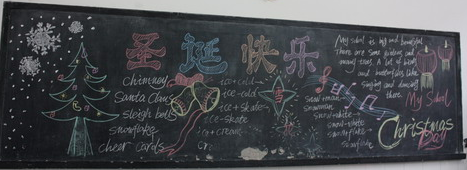 圣诞快乐
Chimney
Santa Claus
sleigh bells
snowflake
cheer carols
ice+cold
ice-cold
ice+skate
ice-skate
cream
snow+man
snowman
snow+white
snow-white
snowflake
My school is big and beautiful.
There are some pictures and
many trees. A lot of birds
and butterflies like
singing and dancing
there.
My School
Christmas
Day